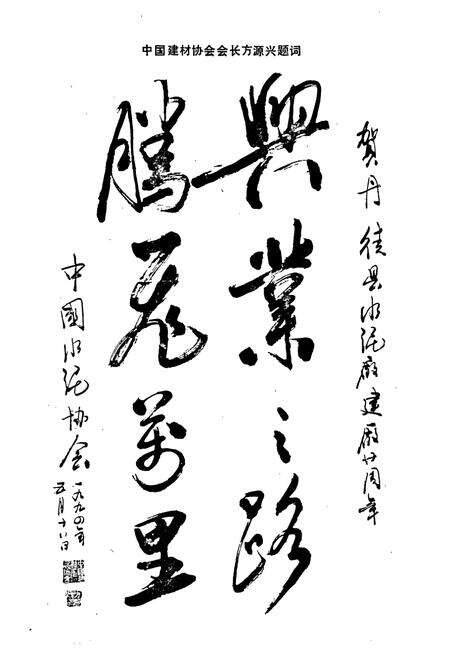 中国建材协会会长方源兴题词
贺丹徒县水泥廠建廠廿周年
興業之路
腾飛萬里
中國水泥协会
一九九四年
五月十八日